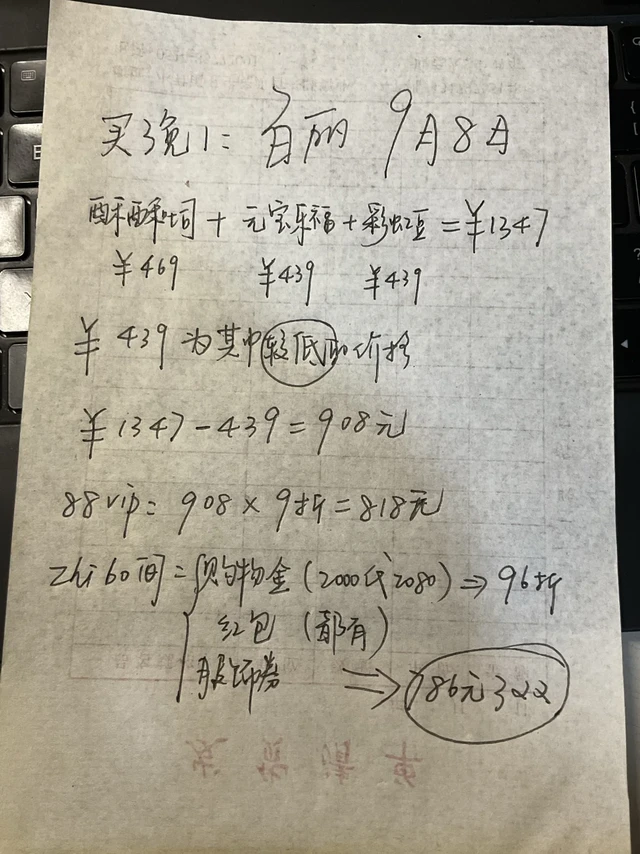 买3免1: 百丽 9月8日
酥酥吐司 + 元宝乐福 + 彩虹豆 = ¥1347
¥469 ¥439 ¥439
¥ 439 为其中较低的价格
¥ 1347 - 439 = 908元
88vip: 908 × 9折 = 818元
zhibo间 = 购物金 (2000代2080) ⇒ 96折
红包 (都有)
服饰券 ⇒ 786元3双